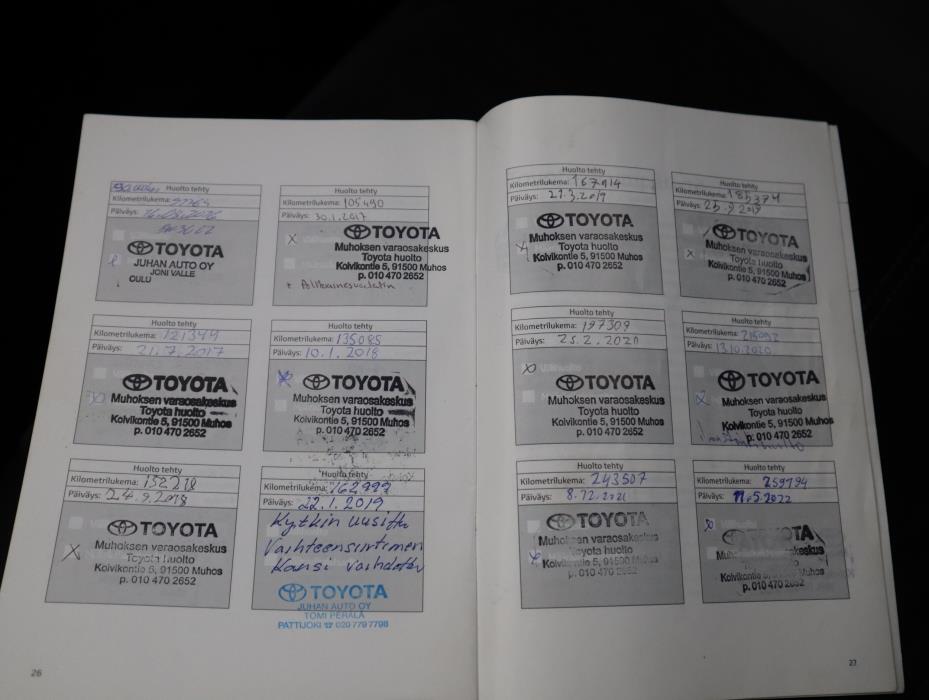 Huolto tehty
Kilometrilukema:
Päiväys:
TOYOTA
JUHAN AUTO OY
JONI VALLE
OULU
Huolto tehty
Kilometrilukema: 105490
Päiväys: 30.1.2017
x
TOYOTA
Muhoksen varaosakeskus
Toyota huolto
Koivikontie 5, 91500 Muhos
p. 010 470 2652
Huolto tehty
Kilometrilukema: 121344
Päiväys: 21.7.2017
TOYOTA
Muhoksen varaosakeskus
Toyota huolto
Koivikontie 5, 91500 Muhos
p. 010 470 2652
Huolto tehty
Kilometrilukema: 135085
Päiväys: 10.1.2018
TOYOTA
Muhoksen varaosakeskus
Toyota huolto
Koivikontie 5, 91500 Muhos
p. 010 470 2652
Huolto tehty
Kilometrilukema: 152218
Päiväys: 24.9.2018
X
TOYOTA
Muhoksen varaosakeskus
Toyota huolto
Koivikontie 5, 91500 Muhos
p. 010 470 2652
Huolto tehty
Kilometrilukema: 162999
Päiväys: 22.1.2019
Kytkin uusittu
Vaihteensiirtimen
Kansi vaihdettu
TOYOTA
JUHAN AUTO OY
TOMI PERÄLÄ
PATTIJOKI ☎ 020 779 7798
26
Huolto tehty
Kilometrilukema: 167914
Päiväys: 21.3.2019
TOYOTA
Muhoksen varaosakeskus
Toyota huolto
Koivikontie 5, 91500 Muhos
p. 010 470 2652
Huolto tehty
Kilometrilukema: 185374
Päiväys: 25.9.2019
x
TOYOTA
Muhoksen varaosakeskus
Toyota huolto
Koivikontie 5, 91500 Muhos
p. 010 470 2652
Huolto tehty
Kilometrilukema: 197309
Päiväys: 25.2.2020
TOYOTA
Muhoksen varaosakeskus
Toyota huolto
Koivikontie 5, 91500 Muhos
p. 010 470 2652
Huolto tehty
Kilometrilukema:
Päiväys: 13.10.2020
TOYOTA
Muhoksen varaosakeskus
Toyota huolto
Koivikontie 5, 91500 Muhos
p. 010 470 2652
Huolto tehty
Kilometrilukema: 243507
Päiväys: 8.12.2021
TOYOTA
Muhoksen varaosakeskus
Toyota huolto
Koivikontie 5, 91500 Muhos
p. 010 470 2652
Huolto tehty
Kilometrilukema: 259194
Päiväys: 11.5.2022
TOYOTA
Muhoksen varaosakeskus
Toyota huolto
Koivikontie 5, 91500 Muhos
p. 010 470 2652
27